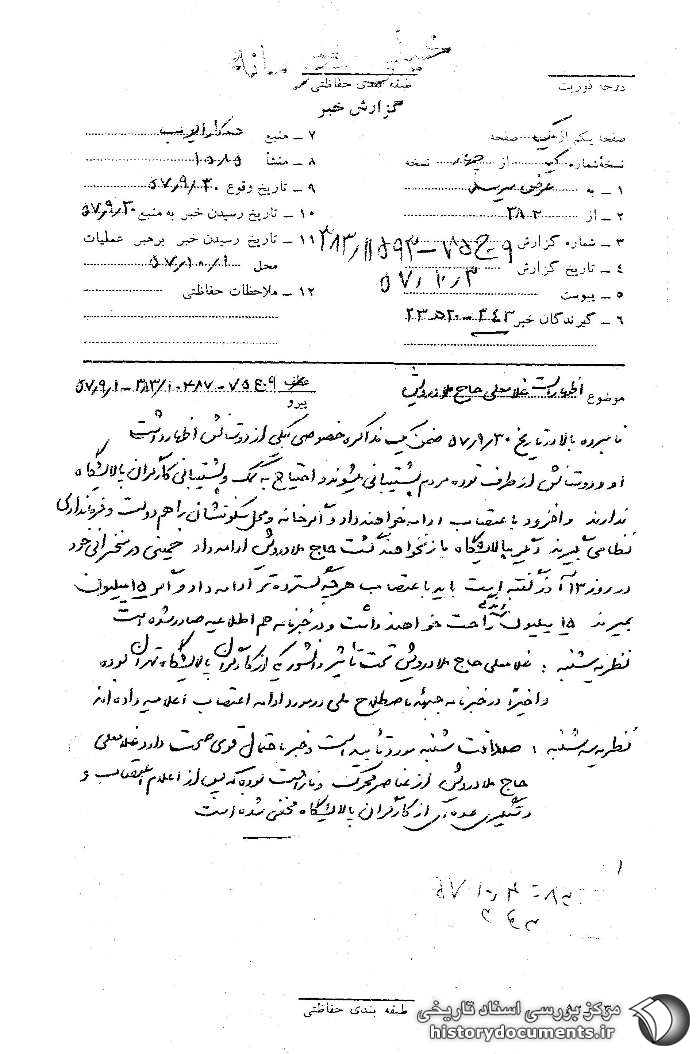 خیلی محرمانه
درجه فوریت
طبقه بندی حفاظتی
گزارش خبر
صفحه یکم از یک صفحه
نسخه شماره یک از چهار نسخه
۱ - به عرض میرسد
۲ - از ۳۸۲
۳ - شماره گزارش
۴ - تاریخ گزارش ۵۷/۱۰/۳
۵ - پیوست
۶ - گیرندگان خبر
۷ - منبع همکار
۸ - منشأ ۱۵۸۵
۹ - تاریخ وقوع ۵۷/۹/۳۰
۱۰ - تاریخ رسیدن خبر به منبع ۵۷/۹/۳۰
۱۱ - تاریخ رسیدن خبر برهبر عملیات
محل ۵۷/۱۰/۱
۱۲ - ملاحظات حفاظتی
موضوع اظهارات غلامعلی حاج ملادرویش
عطف
پیرو
نامبرده بالا در تاریخ ۵۷/۹/۳۰ ضمن یک مذاکره خصوصی با یکی از دوستانش اظهار داشت
او و دوستانش از طرف توده مردم پشتیبانی میشوند و احتیاج به کمک و پشتیبانی کارگران پالایشگاه
ندارند و افزود به اعتصاب ادامه خواهند داد و اگر خانه و محل سکونتشان را هم دولت و فرمانداری
نظامی بگیرند دیگر به پالایشگاه باز نخواهند گشت حاج ملادرویش ادامه داد خمینی در سخنرانی خود
در روز ۱۳ آذر گفته است باید به اعتصاب هرچه گسترده تر ادامه داد و اگر ۱۵ میلیون
بمیرند ۱۵ میلیون زندگی راحت خواهند داشت و در خبرنامه هم اطلاعیه صادر شده است
نظریه شنبه : غلامعلی حاج ملادرویش تحت تأثیر از کارگران پالایشگاه تهران بوده
و اخیراً در خبرنامه جبهه باصطلاح ملی در مورد ادامه اعتصاب اعلامیه داده اند
نظریه سه شنبه : صداقت شنبه مورد تأیید است و خبر باحتمال قوی صحت دارد غلامعلی
حاج ملادرویش از عناصر محرک و ناراحت بوده که پس از اعلام اعتصاب و
دستگیری عده ای از کارگران پالایشگاه مخفی شده است
طبقه بندی حفاظتی
مرکز بررسی اسناد تاریخی
historydocuments.ir